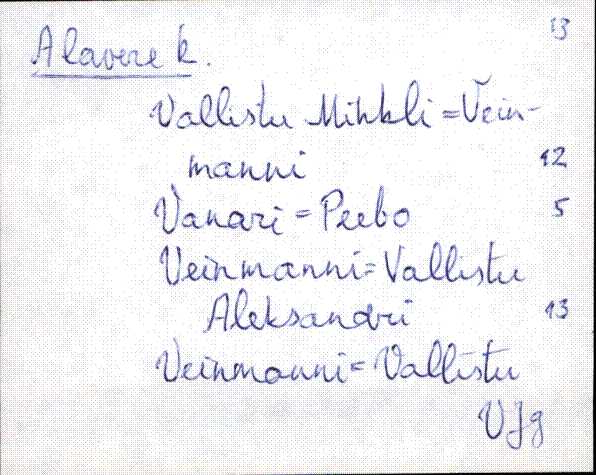 13
Alavere k.
Vallistu Mihkli = Vein-
manni 12
Vanari = Peebo 5
Veinmanni = Vallistu
Aleksandri 13
Veinmanni = Vallistu
VJg